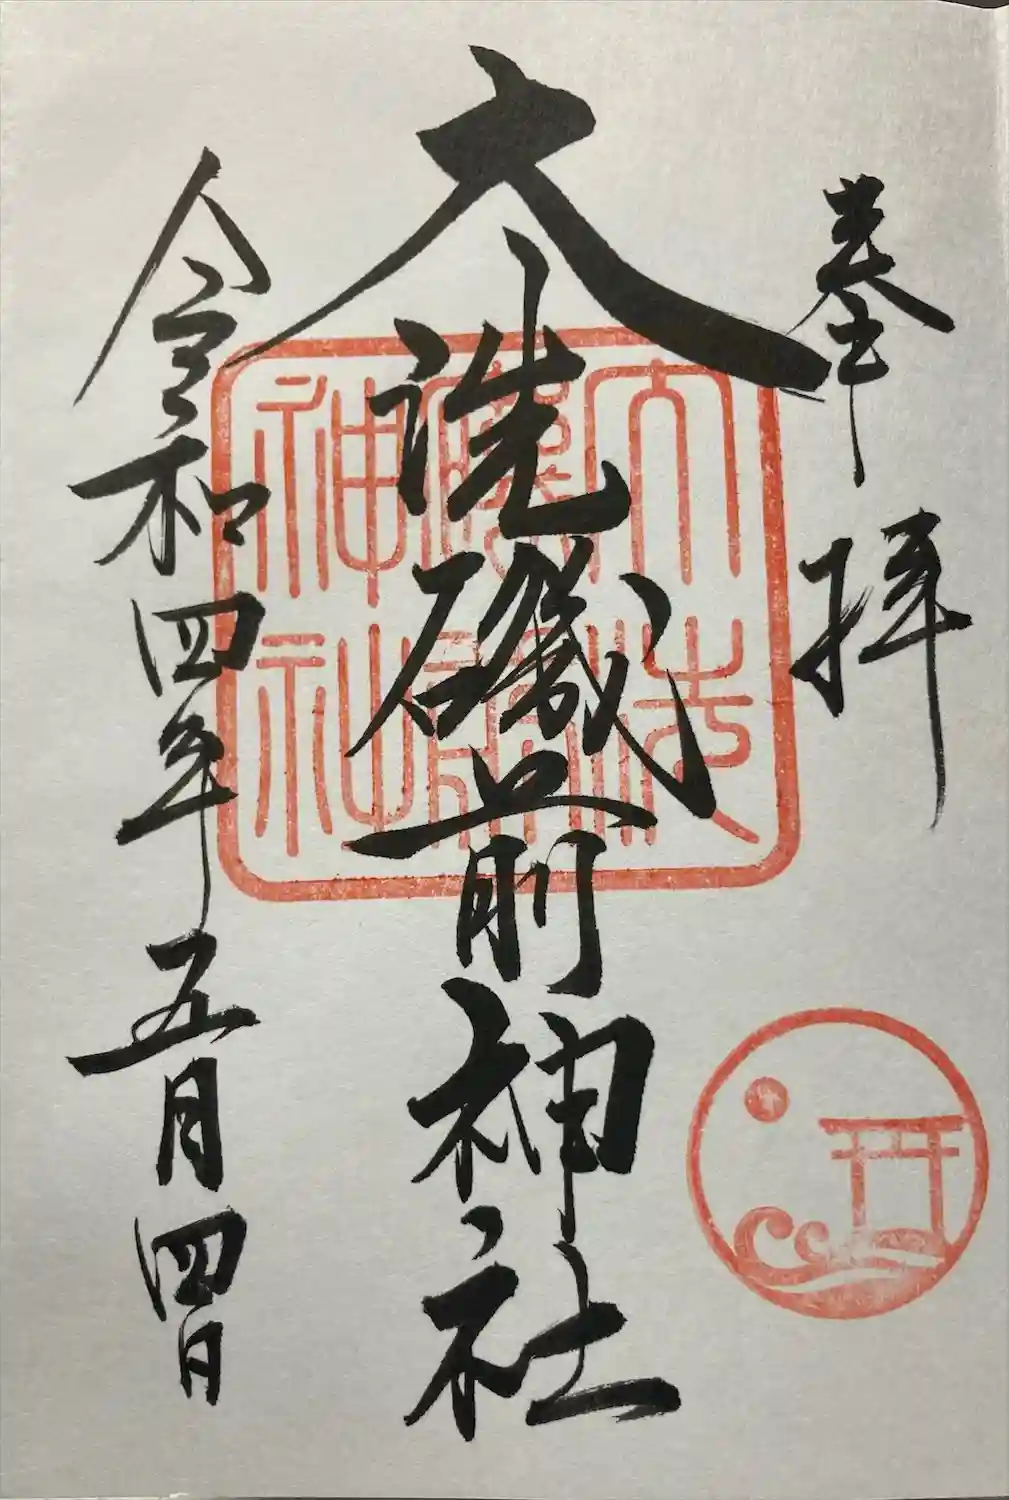 奉拝
大洗磯前神社
令和四年五月四日
大洗
磯前
神社